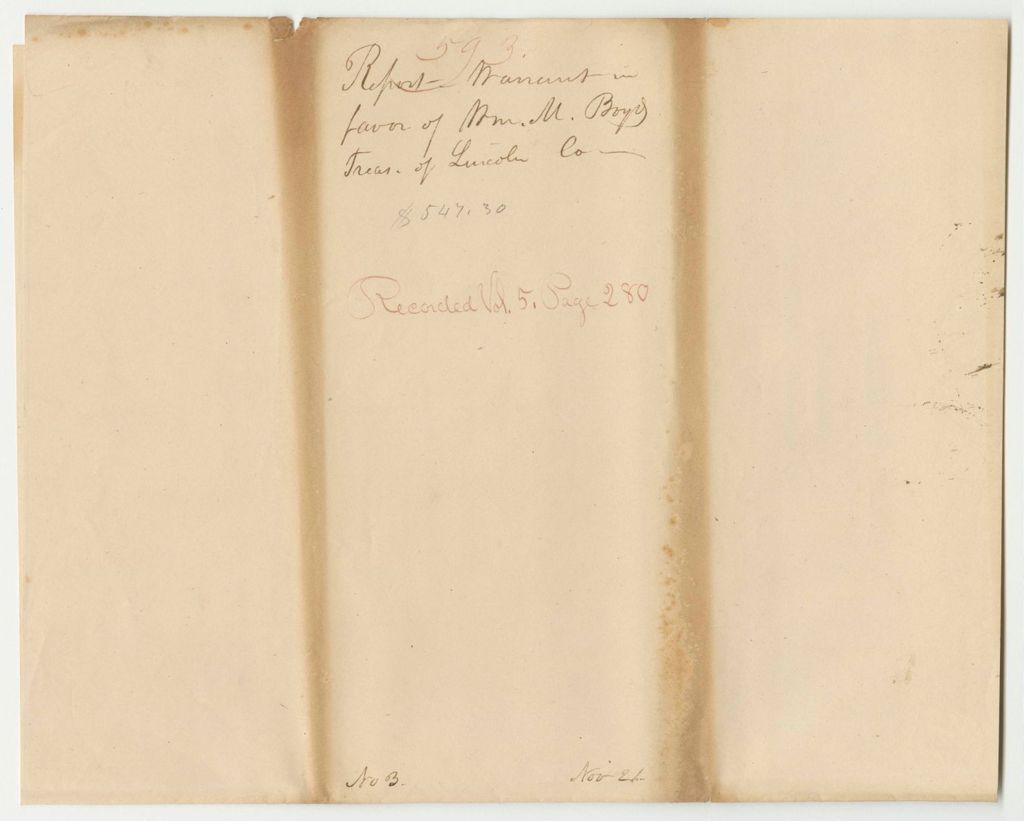 593.
Report - Warrant in
favor of Wm. M. Boyd
Treas. of Lincoln Co —
$547.30
Recorded Vol. 5. Page 280
No 3.
Nov 21